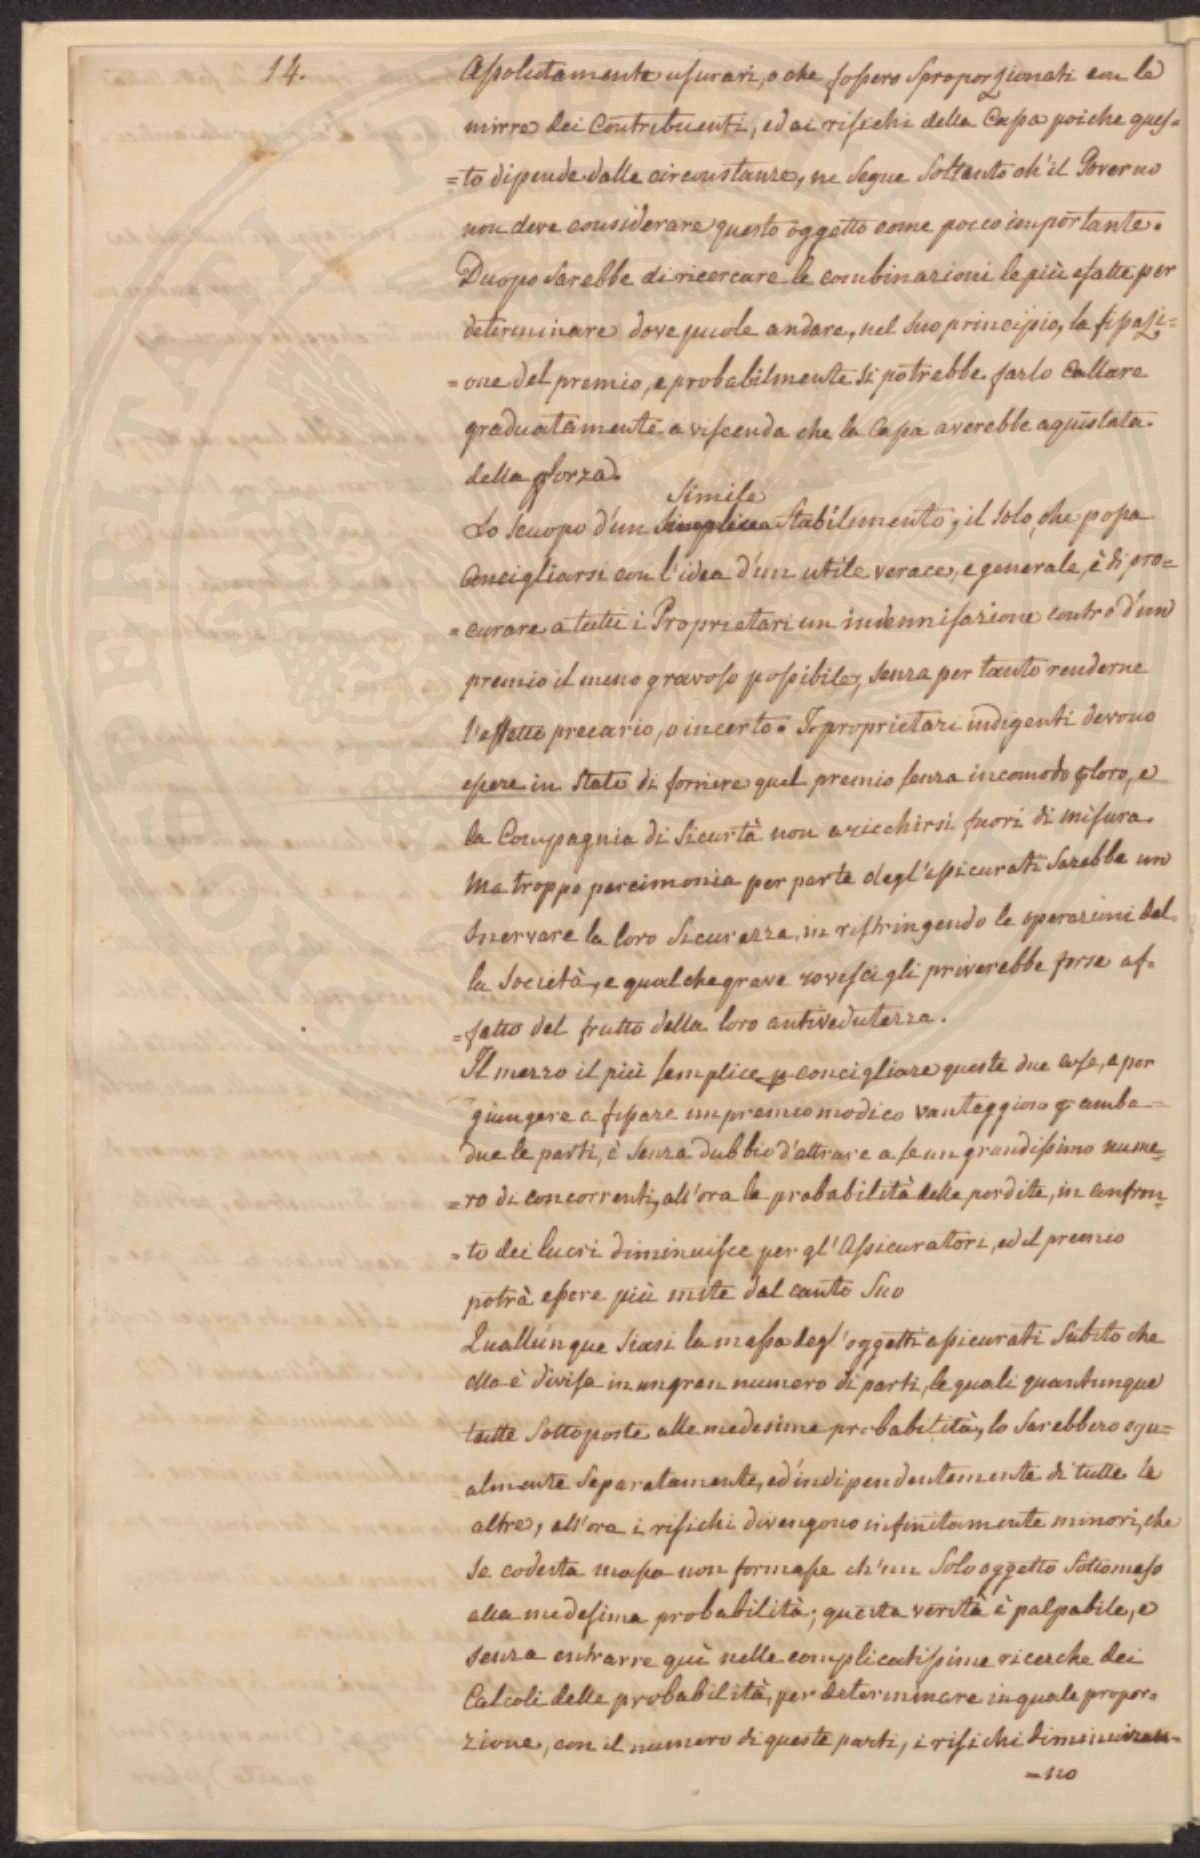 14.
Assolutamente usurari, o che fossero sproporzionati con le
mirre dei Contribuenti, ed ai risichi della Cassa poiche ques=
=to dipende dalle circonstanze, ne segue soltanto ch'il Governo
non deve considerare questo oggetto come pocco importante.
Duopo sarebbe di ricercare le combinazioni le più esatte per
determinare dove puole andare, nel suo principio, la fissazi=
=one del premio, e probabilmente si potrebbe farlo Callare
graduatamente a viscenda che la Cassa averebbe aquistata
della forza.
Simile
Lo scuopo d'un Stabilimento, il solo, che possa
Concigliarsi con l'idea d'un utile verace, e generale, è di pro=
=curare a tutti i Proprietari un indennisazione contro d'un
premio il meno gravoso possibile, senza per tanto renderne
l'effetto precario, o incerto. I proprietari indigenti devono
essere in stato di fornire quel premio senza incomodo loro, e
la Compagnia di Sicurtà non aricchirsi fuori di misura.
Ma troppo parcimonia per parte degl'assicurati sarebbe un
snervare la loro sicurezza, in ristringendo le operazioni del
la Società, e qualche grave rovesci gli priverebbe forse af=
=fatto del frutto della loro antivedutezza.
Il mezzo il più semplice p concigliare queste due cose, e per
giungere a fissare un premio modico vantaggioso p ambe=
due le parti, è senza dubbio d'attrare a se un grandissimo nume=
=ro di concorrenti, all'ora la probabilità delle perdite, in confron=
=to dei lucri diminuisce per gl'Assicuratori, ed il premio
potrà essere più mite dal canto suo
Quallunque siasi la massa degl'oggetti assicurati subito che
ella è divisa in un gran numero di parti, le quali quantunque
tutte sottoposte alle medesime probabilità, lo sarebbero egu=
almente separatamente, ed indipendentemente di tutte le
altre, all'ora i risichi divengono infinitamente minori, che
se codesta massa non formasse ch'un solo oggetto sottomesso
alla medesima probabilità; questa verità è palpabile, e
senza entrarre quì nelle complicatissime ricerche dei
Calcoli delle probabilità, per determinare in quale propor=
zione, con il numero di queste parti, i risichi diminuiran=
=no
PROSPERITATI PUBLICAE